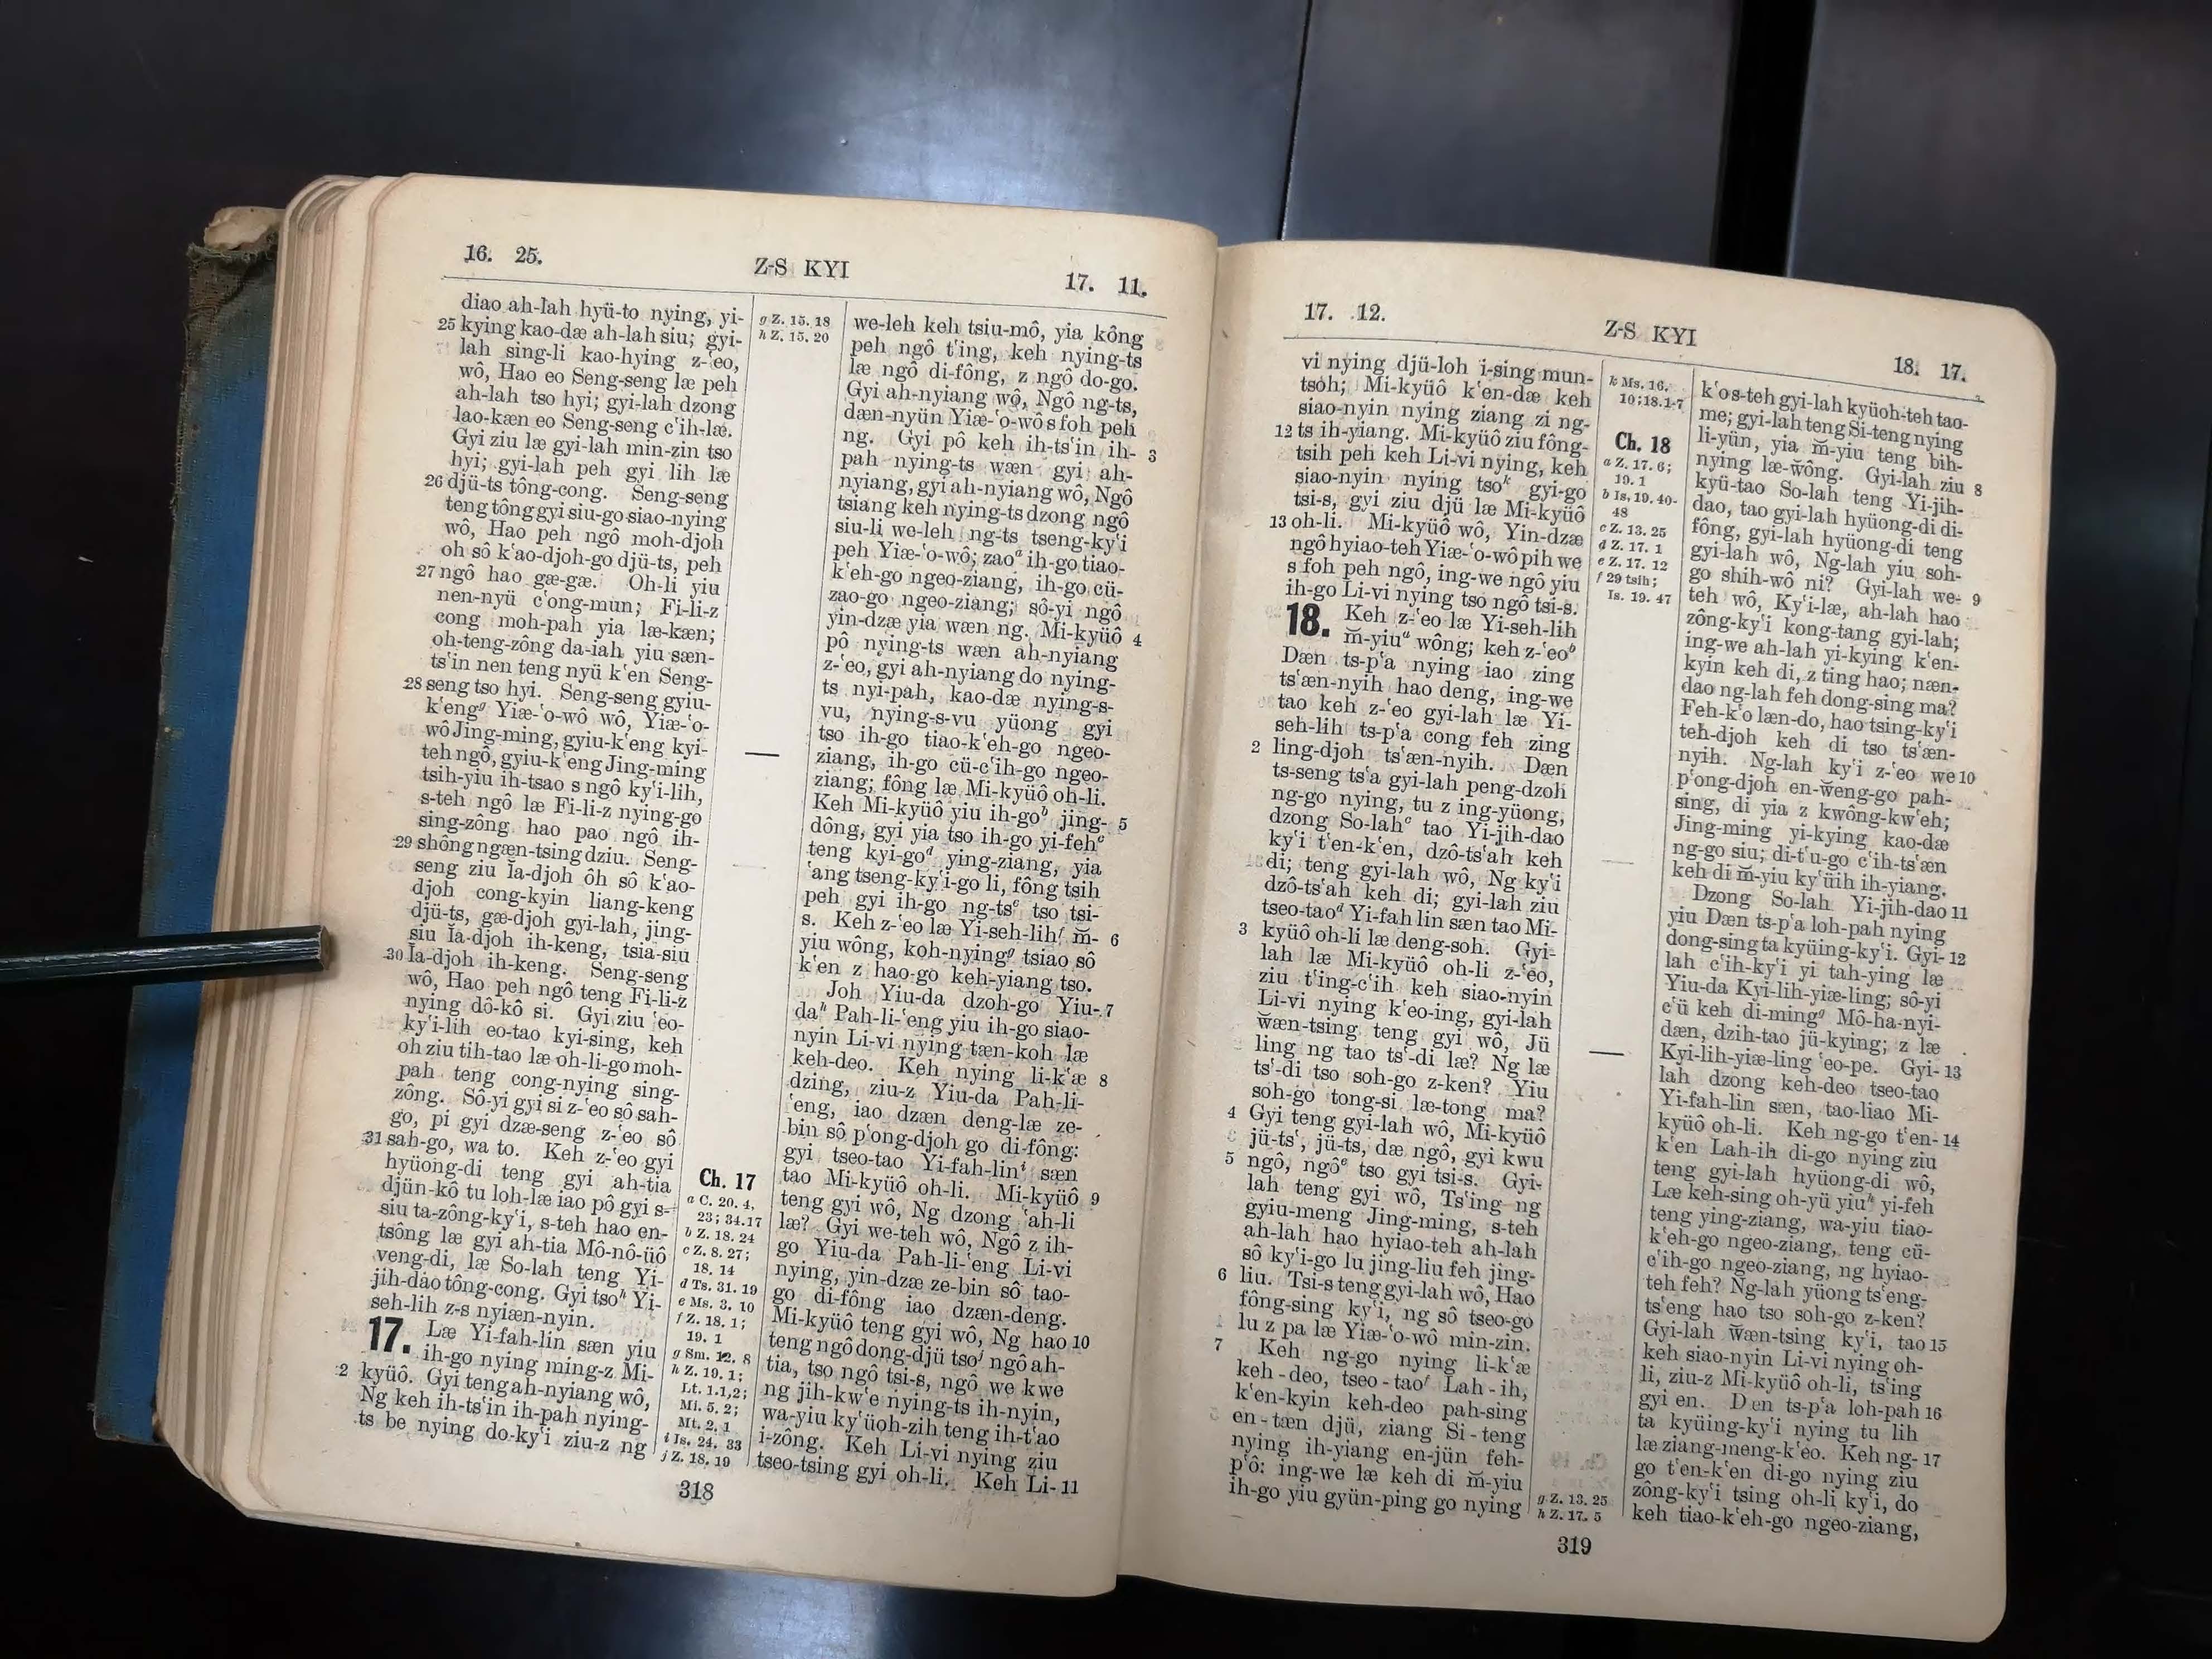 16. 25.
Z-S KYI
17. 11.
diao ah-lah hyü-to nying, yi-
25 kying kao-dæ ah-lah siu; gyi-
lah sing-li kao-hying z-ʽeo,
wô, Hao eo Seng-seng læ peh
ah-lah tso hyi; gyi-lah dzong
lao-kæn eo Seng-seng cʽih-læ.
Gyi ziu læ gyi-lah min-zin tso
hyi; gyi-lah peh gyi lih læ
26 djü-ts tông-cong. Seng-seng
teng tông gyi siu-go siao-nying
wô, Hao peh ngô moh-djoh
oh sô kʽao-djoh-go djü-ts, peh
27 ngô hao gæ-gæ. Oh-li yiu
nen-nyü cʽong-mun; Fi-li-z
cong moh-pah yia læ-kæn;
oh-teng-zông da-iah yiu sæn-
tsʽin nen teng nyü kʽen Seng-
28 seng tso hyi. Seng-seng gyiu-
kʽeng g Yiæ-ʽo-wô wô, Yiæ-ʽo-
wô Jing-ming, gyiu-kʽeng kyi-
teh ngô, gyiu-kʽeng Jing-ming
tsih-yiu ih-tsao s ngô kyʽi-lih,
s-teh ngô læ Fi-li-z nying-go
sing-zông hao pao ngô ih-
29 shông ngæn-tsing dziu. Seng-
seng ziu ĭa-djoh ôh sô kʽao-
djoh cong-kyin liang-keng
djü-ts, gæ-djoh gyi-lah, jing-
siu ĭa-djoh ih-keng, tsia-siu
30 ĭa-djoh ih-keng. Seng-seng
wô, Hao peh ngô teng Fi-li-z
nying dô-kô si. Gyi ziu ʽeo-
kyʽi-lih eo-tao kyi-sing, keh
oh ziu tih-tao læ oh-li-go moh-
pah teng cong-nying sing-
zông. Sô-yi gyi si z-ʽeo sô sah-
go, pi gyi dzæ-seng z-ʽeo sô
31 sah-go, wa to. Keh z-ʽeo gyi
hyüong-di teng gyi ah-tia
djün-kô tu loh-læ iao pô gyi s-
siu ta-zông-kyʽi, s-teh hao en-
tsông læ gyi ah-tia Mô-nô-üô
veng-di, læ So-lah teng Yi-
jih-dao tông-cong. Gyi tso h Yi-
seh-lih z-s nyiæn-nyin.
17. Læ Yi-fah-lin sæn yiu
ih-go nying ming-z Mi-
2 kyüô. Gyi teng ah-nyiang wô,
Ng keh ih-tsʽin ih-pah nying-
ts be nying do-kyʽi ziu-z ng
g Z. 15. 18
h Z. 15. 20
Ch. 17
a C. 20. 4,
23; 34. 17
b Z. 18. 24
c Z. 8. 27;
18. 14
d Ts. 31. 19
e Ms. 3. 10
f Z. 18. 1;
19. 1
g Sm. 12. 8
h Z. 19. 1;
Lt. 1.1,2;
Mi. 5. 2;
Mt. 2. 1
i Is. 24. 33
j Z. 18. 19
we-leh keh tsiu-mô, yia kông
peh ngô tʽing, keh nying-ts
læ ngô di-fông, z ngô do-go.
Gyi ah-nyiang wô, Ngô ng-ts,
dæn-nyün Yiæ-ʽo-wô s foh peh
ng. Gyi pô keh ih-tsʽin ih- 3
pah nying-ts wæn gyi ah-
nyiang, gyi ah-nyiang wô, Ngô
tsiang keh nying-ts dzong ngô
siu-li we-leh ng-ts tseng-kyʽi
peh Yiæ-ʽo-wô; zao a ih-go tiao-
kʽeh-go ngeo-ziang, ih-go cü-
zao-go ngeo-ziang; sô-yi ngô
yin-dzæ yia wæn ng. Mi-kyüô 4
pô nying-ts wæn ah-nyiang
z-ʽeo, gyi ah-nyiang do nying-
ts nyi-pah, kao-dæ nying-s-
vu, nying-s-vu yüong gyi
tso ih-go tiao-kʽeh-go ngeo-
ziang, ih-go cü-cʽih-go ngeo-
ziang; fông læ Mi-kyüô oh-li.
Keh Mi-kyüô yiu ih-go b jing- 5
dông, gyi yia tso ih-go yi-feh c
teng kyi-go d ying-ziang, yia
ʽang tseng-kyʽi-go li, fông tsih
peh gyi ih-go ng-ts e tso tsi-
s. Keh z-ʽeo læ Yi-seh-lih f m̆- 6
yiu wông, koh-nying g tsiao sô
kʽen z hao-go keh-yiang tso.
Joh Yiu-da dzoh-go Yiu- 7
da h Pah-li-ʽeng yiu ih-go siao-
nyin Li-vi nying tæn-koh læ
keh-deo. Keh nying li-kʽæ 8
dzing, ziu-z Yiu-da Pah-li-
ʽeng, iao dzæn deng-læ ze-
bin sô pʽong-djoh go di-fông:
gyi tseo-tao Yi-fah-lin i sæn
tao Mi-kyüô oh-li. Mi-kyüô 9
teng gyi wô, Ng dzong ʽah-li
læ? Gyi we-teh wô, Ngô z ih-
go Yiu-da Pah-li-ʽeng Li-vi
nying, yin-dzæ ze-bin sô tao-
go di-fông iao dzæn-deng.
Mi-kyüô teng gyi wô, Ng hao 10
teng ngô dong-djü tso j ngô ah-
tia, tso ngô tsi-s, ngô we kwe
ng jih-kwʽe nying-ts ih-nyin,
wa-yiu kyʽüoh-zih teng ih-tʽao
i-zông. Keh Li-vi nying ziu
tseo-tsing gyi oh-li. Keh Li- 11
318
17. 12.
Z-S KYI
18. 17.
vi nying djü-loh i-sing mun-
tsoh; Mi-kyüô kʽen-dæ keh
siao-nyin nying ziang zi ng-
12 ts ih-yiang. Mi-kyüô ziu fông-
tsih peh keh Li-vi nying, keh
siao-nyin nying tso k gyi-go
tsi-s, gyi ziu djü læ Mi-kyüô
13 oh-li. Mi-kyüô wô, Yin-dzæ
ngô hyiao-teh Yiæ-ʽo-wô pih we
s foh peh ngô, ing-we ngô yiu
ih-go Li-vi nying tso ngô tsi-s.
18. Keh z-ʽeo læ Yi-seh-lih
m̆-yiu a wông; keh z-ʽeo b
Dæn ts-pʽa nying iao zing
tsʽæn-nyih hao deng, ing-we
tao keh z-ʽeo gyi-lah læ Yi-
seh-lih ts-pʽa cong feh zing
2 ling-djoh tsʽæn-nyih. Dæn
ts-seng tsʽa gyi-lah peng-dzoh
ng-go nying, tu z ing-yüong,
dzong So-lah c tao Yi-jih-dao
kyʽi tʽen-kʽen, dzô-tsʽah keh
di; teng gyi-lah wô, Ng kyʽi
dzô-tsʽah keh di; gyi-lah ziu
tseo-tao d Yi-fah lin sæn tao Mi-
3 kyüô oh-li læ deng-soh. Gyi-
lah læ Mi-kyüô oh-li z-ʽeo,
ziu tʽing-cʽih keh siao-nyin
Li-vi nying kʽeo-ing, gyi-lah
w̆æn-tsing teng gyi wô, Jü
ling ng tao tsʽ-di læ? Ng læ
tsʽ-di tso soh-go z-ken? Yiu
soh-go tong-si læ-tong ma?
4 Gyi teng gyi-lah wô, Mi-kyüô
jü-tsʽ, jü-ts, dæ ngô, gyi kwu
5 ngô, ngô e tso gyi tsi-s. Gyi-
lah teng gyi wô, Tsʽing ng
gyiu-meng Jing-ming, s-teh
ah-lah hao hyiao-teh ah-lah
sô kyʽi-go lu jing-liu feh jing-
6 liu. Tsi-s teng gyi-lah wô, Hao
fông-sing kyʽi, ng sô tseo-go
lu z pa læ Yiæ-ʽo-wô min-zin.
7 Keh ng-go nying li-kʽæ
keh-deo, tseo-tao f Lah-ih,
kʽen-kyin keh-deo pah-sing
en-tæn djü, ziang Si-teng
nying ih-yiang en-jün feh-
pʽô: ing-we læ keh di m̆-yiu
ih-go yiu gyün-ping go nying
k Ms. 16.
10; 18.1-7
Ch. 18
a Z. 17. 6;
19. 1
b Is. 19. 40-
48
c Z. 13. 25
d Z. 17. 1
e Z. 17. 12
f 29 tsih;
Is. 19. 47
g Z. 13. 25
h Z. 17. 5
kʽo s-teh gyi-lah kyüoh-teh tao-
me; gyi-lah teng Si-teng nying
li-yün, yia m̆-yiu teng bih-
nying læ-w̆ông. Gyi-lah ziu 8
kyü-tao So-lah teng Yi-jih-
dao, tao gyi-lah hyüong-di di-
fông, gyi-lah hyüong-di teng
gyi-lah wô, Ng-lah yiu soh-
go shih-wô ni? Gyi-lah we- 9
teh wô, Kyʽi-læ, ah-lah hao
zông-kyʽi kong-tang gyi-lah;
ing-we ah-lah yi-kying kʽen-
kyin keh di, z ting hao; næn-
dao ng-lah feh dong-sing ma?
Feh-kʽo læn-do, hao tsing-kyʽi
teh-djoh keh di tso tsʽæn-
nyih. Ng-lah kyʽi z-ʽeo we 10
pʽong-djoh en-w̆eng-go pah-
sing, di yia z kwông-kwʽeh;
Jing-ming yi-kying kao-dæ
ng-go siu; di-tʽu-go cʽih-tsʽæn
keh di m̆-yiu kyʽüih ih-yiang.
Dzong So-lah Yi-jih-dao 11
yiu Dæn ts-pʽa loh-pah nying
dong-sing ta kyüing-kyʽi. Gyi- 12
lah cʽih-kyʽi yi tah-ying læ
Yiu-da Kyi-lih-yiæ-ling; sô-yi
cʽü keh di-ming g Mô-ha-nyi-
dæn, dzih-tao jü-kying; z læ
Kyi-lih-yiæ-ling ʽeo-pe. Gyi- 13
lah dzong keh-deo tseo-tao
Yi-fah-lin sæn, tao-liao Mi-
kyüô oh-li. Keh ng-go tʽen- 14
kʽen Lah-ih di-go nying ziu
teng gyi-lah hyüong-di wô,
Læ keh-sing oh-yü yiu h yi-feh
teng ying-ziang, wa-yiu tiao-
kʽeh-go ngeo-ziang, teng cü-
cʽih-go ngeo-ziang, ng hyiao-
teh feh? Ng-lah yüong tsʽeng-
tsʽeng hao tso soh-go z-ken?
Gyi-lah w̆æn-tsing kyʽi, tao 15
keh siao-nyin Li-vi nying oh-
li, ziu-z Mi-kyüô oh-li, tsʽing
gyi en. Dæn ts-pʽa loh-pah 16
ta kyüing-kyʽi nying tu lih
læ ziang-meng-kʽeo. Keh ng- 17
go tʽen-kʽen di-go nying ziu
zông-kyʽi tsing oh-li kyʽi, do
keh tiao-kʽeh-go ngeo-ziang,
319